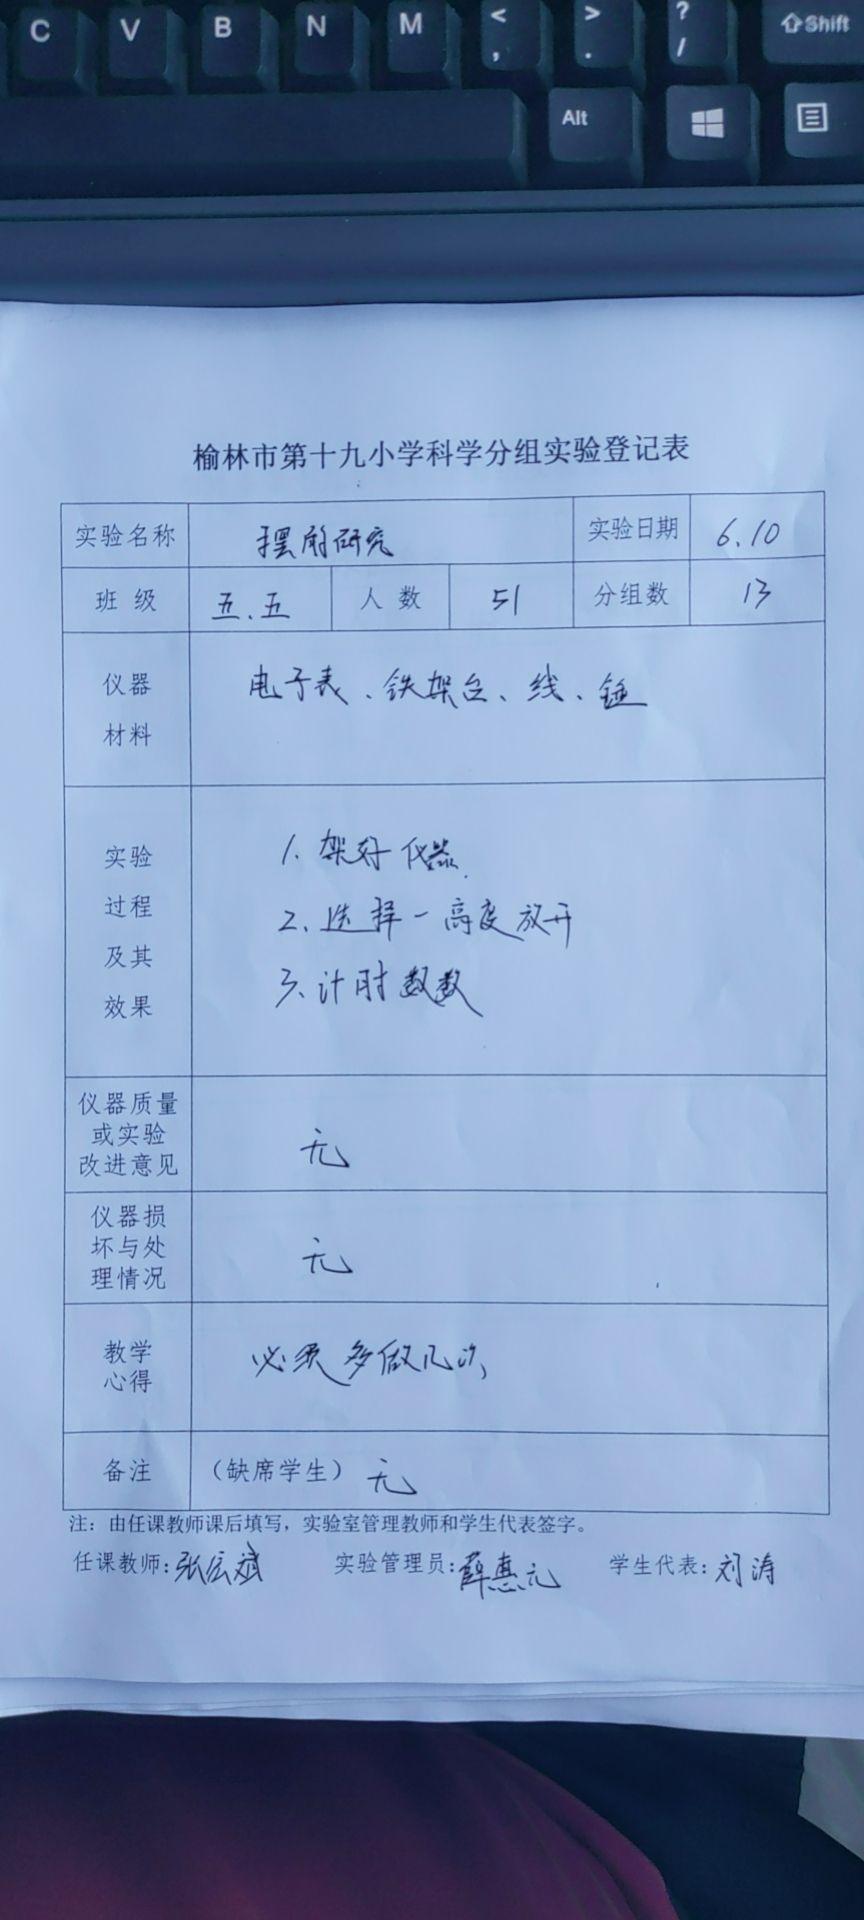 C V B N M < , > . ? / Shift
Alt
榆林市第十九小学科学分组实验登记表
实验名称 摆的研究 实验日期 6.10
班 级 五.五 人 数 51 分组数 13
仪器 电子表、铁架台、线、锤
材料
实验 1. 架好仪器.
过程 2、选择一高度放开
及其 3、计时数数
效果
仪器质量
或实验 无
改进意见
仪器损
坏与处 无
理情况
教学 必须多做几次
心得
备注 (缺席学生) 无
注: 由任课教师课后填写, 实验室管理教师和学生代表签字。
任课教师: 张宏斌 实验管理员: 薛惠元 学生代表: 刘涛